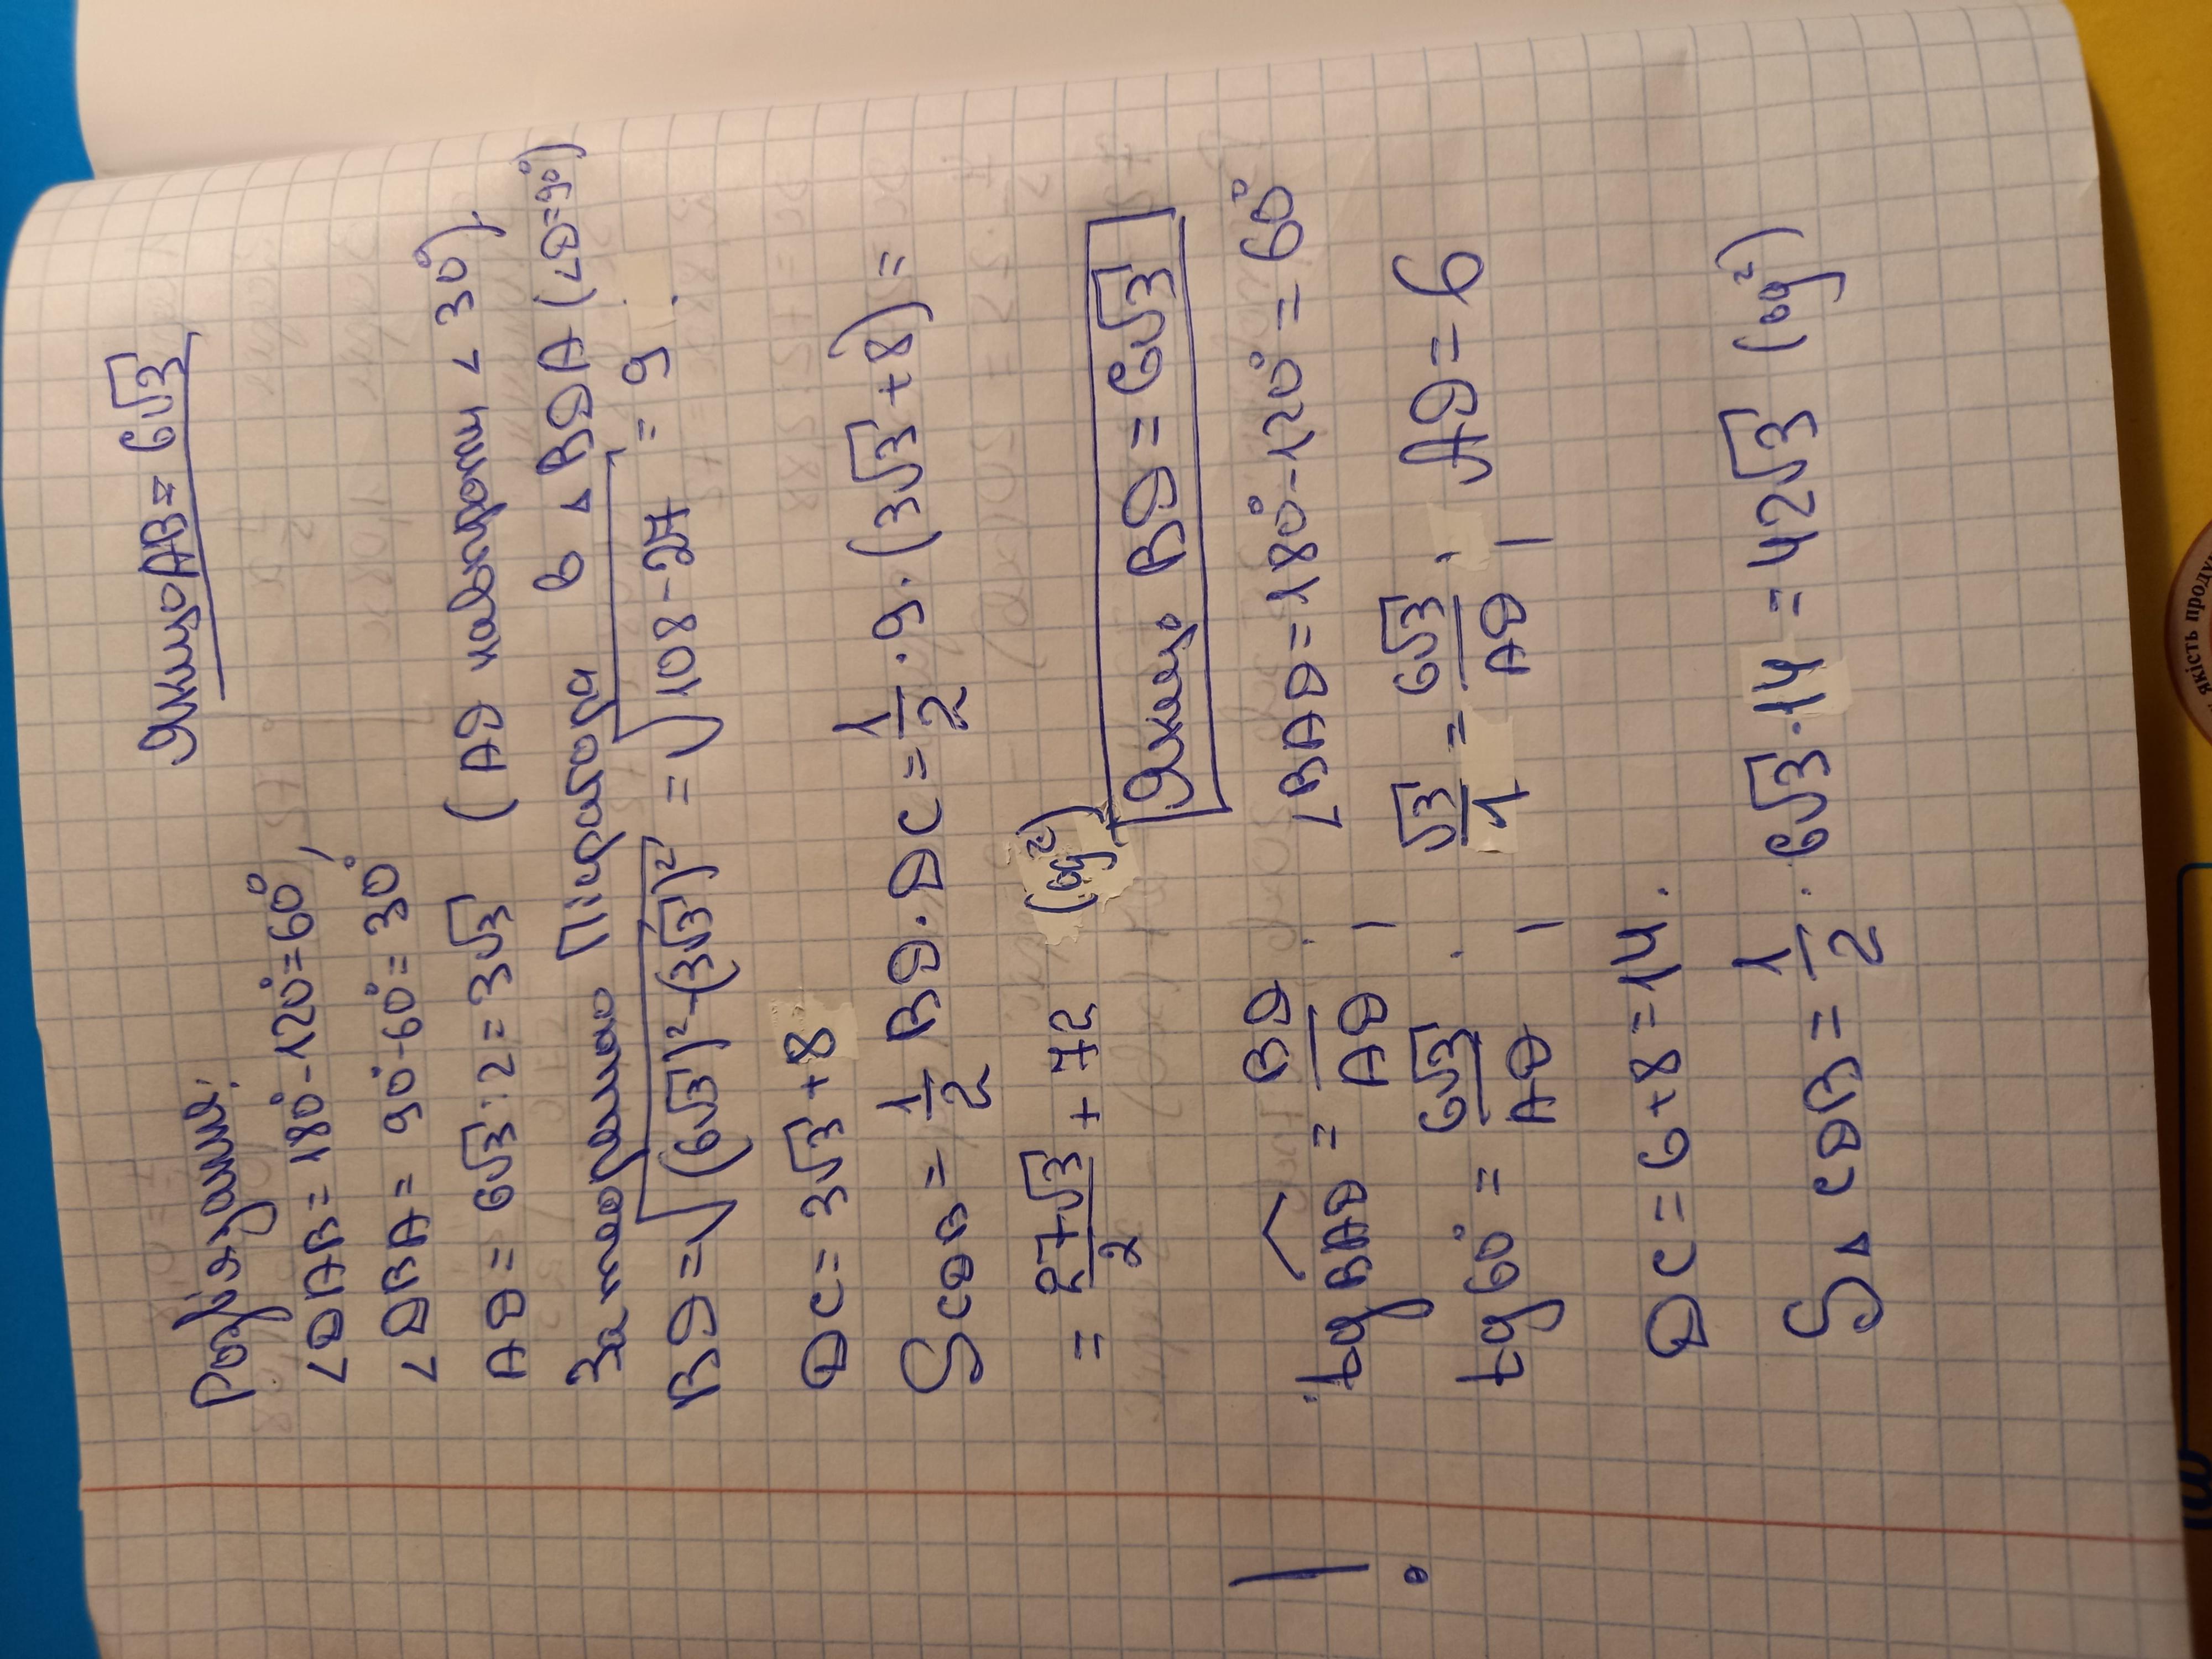 Якщо AB = 6√3
Розв'язання:
∠DAB = 180° - 120° = 60°,
∠DBA = 90° - 60° = 30°
AD = 6√3 : 2 = 3√3 (AD навпроти ∠ 30°)
За теоремою Піфагора в △ BDA (∠D=90°)
BD = √((6√3)² - (3√3)²) = √(108 - 27) = 9.
DC = 3√3 + 8
S CDB = 1/2 BD · DC = 1/2 · 9 · (3√3 + 8) =
= 27√3/2 + 72 (од²)
Якщо BD = 6√3
∠BAD = 180° - 120° = 60°
tg BAD = BD/AD ;
tg 60° = 6√3/AD ; √3/1 = 6√3/AD ; AD = 6
DC = 6 + 8 = 14.
S△ CDB = 1/2 · 6√3 · 14 = 42√3 (од²)
!
якість продук